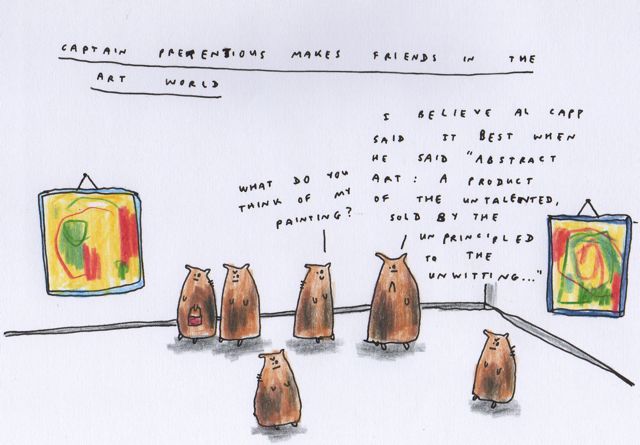 CAPTAIN PRETENTIOUS MAKES FRIENDS IN THE
ART WORLD
WHAT DO YOU
THINK OF MY
PAINTING?
I BELIEVE AL CAPP
SAID IT BEST WHEN
HE SAID "ABSTRACT
ART: A PRODUCT
OF THE UNTALENTED,
SOLD BY THE
UNPRINCIPLED
TO THE
UNWITTING..."